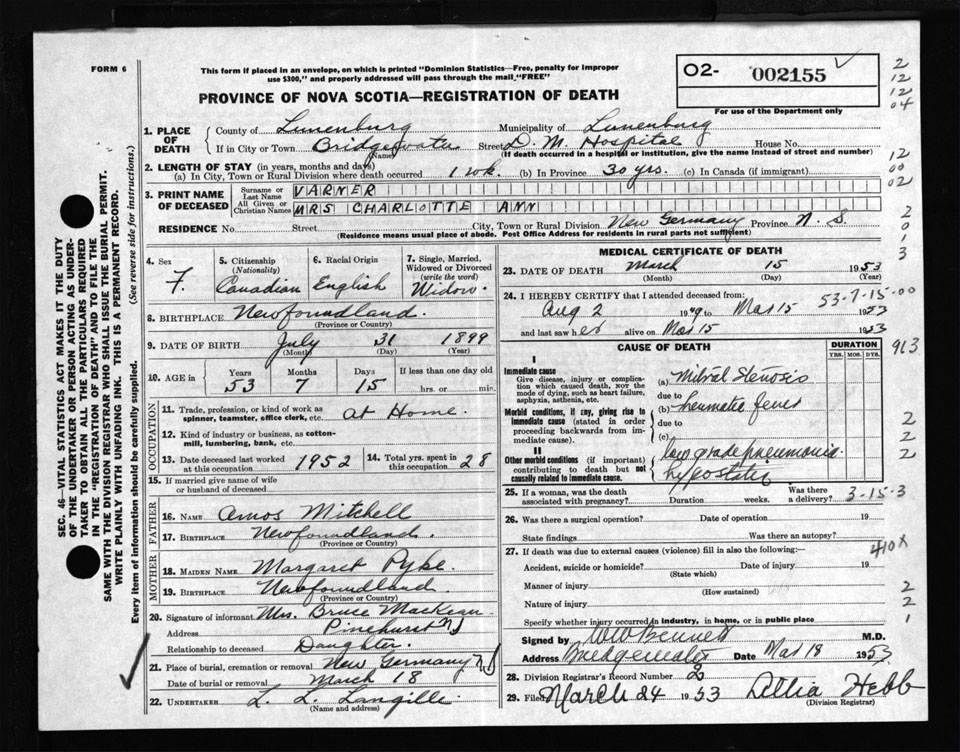 FORM 6
This form if placed in an envelope, on which is printed "Dominion Statistics—Free, penalty for improper
use $300," and properly addressed will pass through the mail "FREE"
PROVINCE OF NOVA SCOTIA—REGISTRATION OF DEATH
O2- 002155
For use of the Department only
2
12
12
04
12
00
02
2
0
1
3
1. PLACE OF DEATH
County of Lunenburg Municipality of Lunenburg
If in City or Town Bridgewater Street D. M. Hospital House No.
(Name) (If death occurred in a hospital or institution, give the name instead of street and number)
2. LENGTH OF STAY (in years, months and days)
(a) In City, Town or Rural Division where death occurred 1 wk. (b) In Province 30 yrs. (c) In Canada (if immigrant)
3. PRINT NAME OF DECEASED
Surname or Last Name VARNER
All Given or Christian Names MRS CHARLOTTE ANN
RESIDENCE No. Street City, Town or Rural Division New Germany Province N. S.
(Residence means usual place of abode. Post Office Address for residents in rural parts not sufficient)
4. Sex F.
5. Citizenship (Nationality) Canadian
6. Racial Origin English
7. Single, Married, Widowed or Divorced (write the word) Widow.
8. BIRTHPLACE Newfoundland.
(Province or Country)
9. DATE OF BIRTH July 31 1899
(Month) (Day) (Year)
10. AGE in Years 53 Months 7 Days 15 If less than one day old hrs. or min.
OCCUPATION
11. Trade, profession, or kind of work as spinner, teamster, office clerk, etc. at Home.
12. Kind of industry or business, as cotton-mill, lumbering, bank, etc.
13. Date deceased last worked at this occupation 1952 14. Total yrs. spent in this occupation 28
15. If married give name of wife or husband of deceased
FATHER
16. NAME Amos Mitchell
17. BIRTHPLACE Newfoundland.
(Province or Country)
MOTHER
18. MAIDEN NAME Margaret Pyke.
19. BIRTHPLACE Newfoundland.
(Province or Country)
20. Signature of informant Mrs. Bruce MacKean
Address Pinehurst NS
Relationship to deceased Daughter.
21. Place of burial, cremation or removal New Germany NS
Date of burial or removal March 18
22. UNDERTAKER L. L. Langille
(Name and address)
MEDICAL CERTIFICATE OF DEATH
23. DATE OF DEATH March 15 1953
(Month) (Day) (Year)
24. I HEREBY CERTIFY that I attended deceased from: 53-7-15-00
Aug 2 1949 to Mar 15 1953
and last saw her alive on Mar 15 1953
CAUSE OF DEATH
DURATION
YRS. MOS. DYS.
913
I
Immediate cause
Give disease, injury or complication which caused death, NOT the mode of dying, such as heart failure, asphyxia, asthenia, etc.
(a) Mitral Stenosis
due to
Morbid conditions, if any, giving rise to immediate cause (stated in order proceeding backwards from immediate cause).
(b) rheumatic fever
due to
(c)
II
Other morbid conditions (if important) contributing to death but not causally related to immediate cause.
low grade pneumonia
hypostatic
2
2
2
25. If a woman, was the death associated with pregnancy? Duration weeks. Was there a delivery? 3-15-3
26. Was there a surgical operation? Date of operation 19
State findings Was there an autopsy?
27. If death was due to external causes (violence) fill in also the following:— 410X
Accident, suicide or homicide? Date of injury 19
(State which)
Manner of injury
(How sustained)
Nature of injury
2
2
1
Specify whether injury occurred in industry, in home, or in public place
Signed by WW Bennett M.D.
Address Bridgewater Date Mar 18 1953
28. Division Registrar's Record Number 2
29. Filed March 24 1953 Hebb
(Division Registrar)
SEC. 46—VITAL STATISTICS ACT MAKES IT THE DUTY
OF THE UNDERTAKER OR PERSON ACTING AS UNDER-
TAKER TO OBTAIN ALL THE PARTICULARS REQUIRED
IN THE "REGISTRATION OF DEATH" AND TO FILE THE
SAME WITH THE DIVISION REGISTRAR WHO SHALL ISSUE THE BURIAL PERMIT.
WRITE PLAINLY WITH UNFADING INK. THIS IS A PERMANENT RECORD.
Every item of information should be carefully supplied. (See reverse side for instructions.)